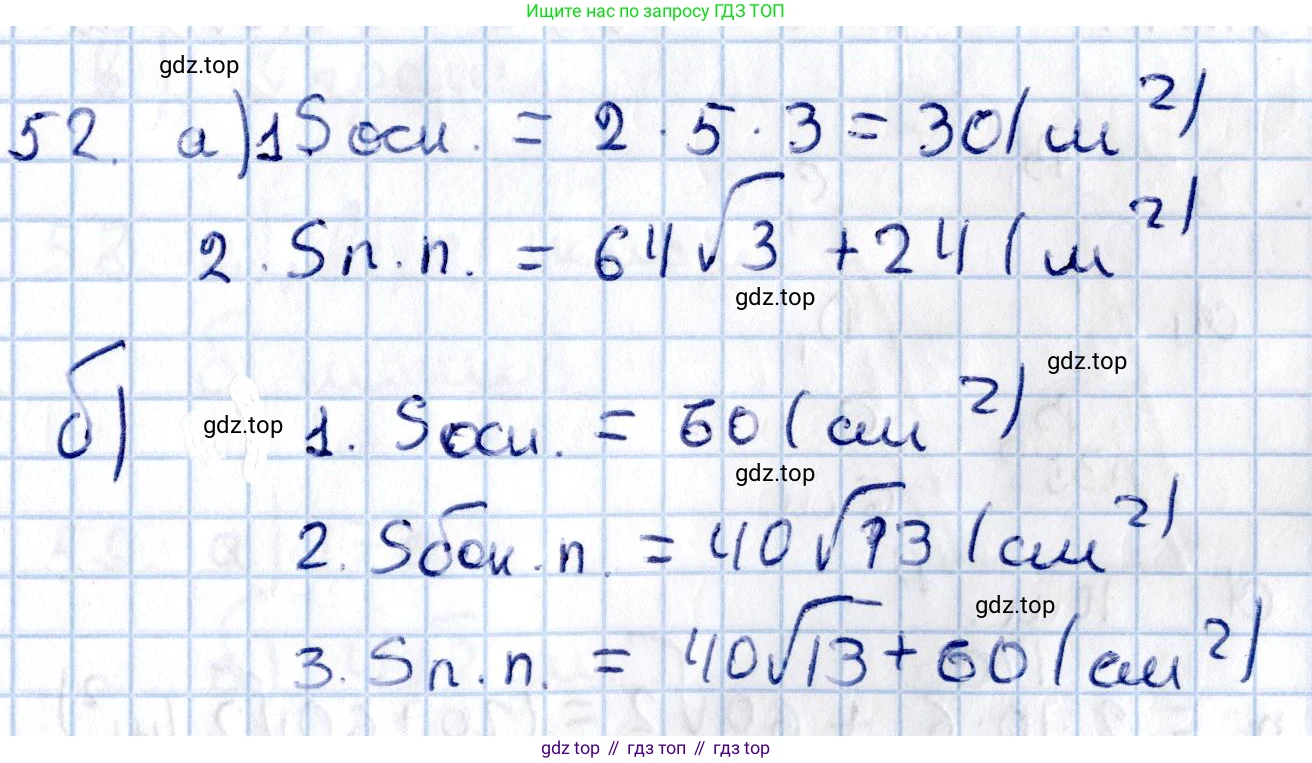 Ищите нас по запросу ГДЗ ТОП
gdz.top
52. а) 1 Sосн. = 2 · 5 · 3 = 30 (м²)
2. Sп.п. = 64√3 + 24 (м²)
gdz.top
gdz.top
б) gdz.top 1. Sосн. = 60 (см²)
gdz.top
2. Sбок.п. = 40√13 (см²)
gdz.top
3. Sп.п. = 40√13 + 60 (см²)
gdz top // гдз топ // gdz top